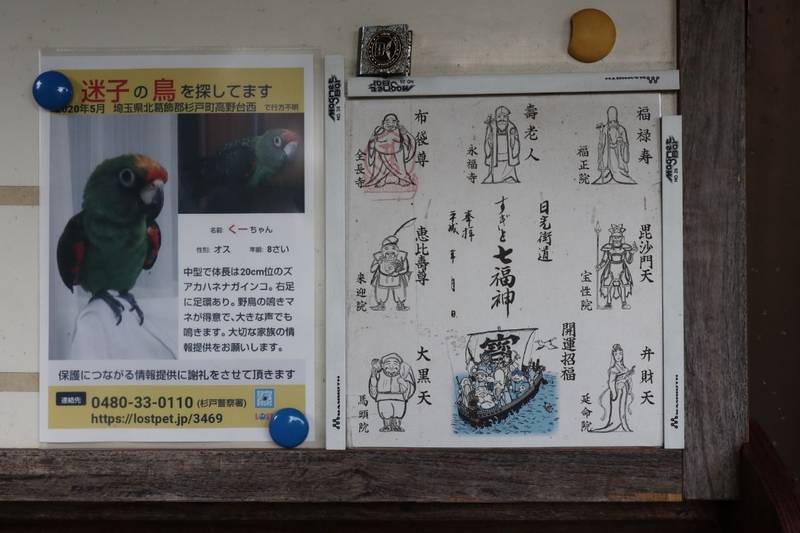 迷子の鳥を探してます
2020年5月 埼玉県北葛飾郡杉戸町高野台西 で行方不明
名前: くーちゃん
性別: オス 年齢: 8さい
中型で体長は20cm位のズ
アカハネナガインコ。右足
に足環あり。野鳥の鳴きマ
ネが得意で、大きな声でも
鳴きます。大切な家族の情
報提供をお願いします。
保護につながる情報提供に謝礼をさせて頂きます
連絡先 0480-33-0110 (杉戸警察署)
https://lostpet.jp/3469
福禄寿
福正院
壽老人
永福寺
布袋尊
全長寺
毘沙門天
宝性院
日光街道
すぎと七福神
奉拝
平成 年 月 日
恵比壽尊
来迎院
弁財天
延命院
開運招福
寳
大黒天
馬頭院